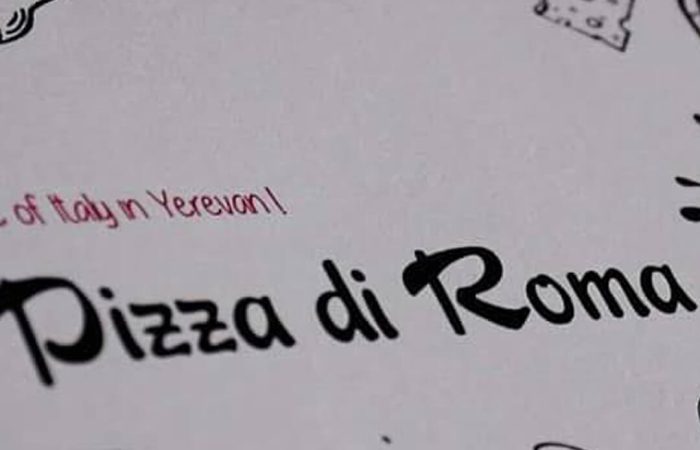 of Italy in Yerevan!
Pizza di Roma